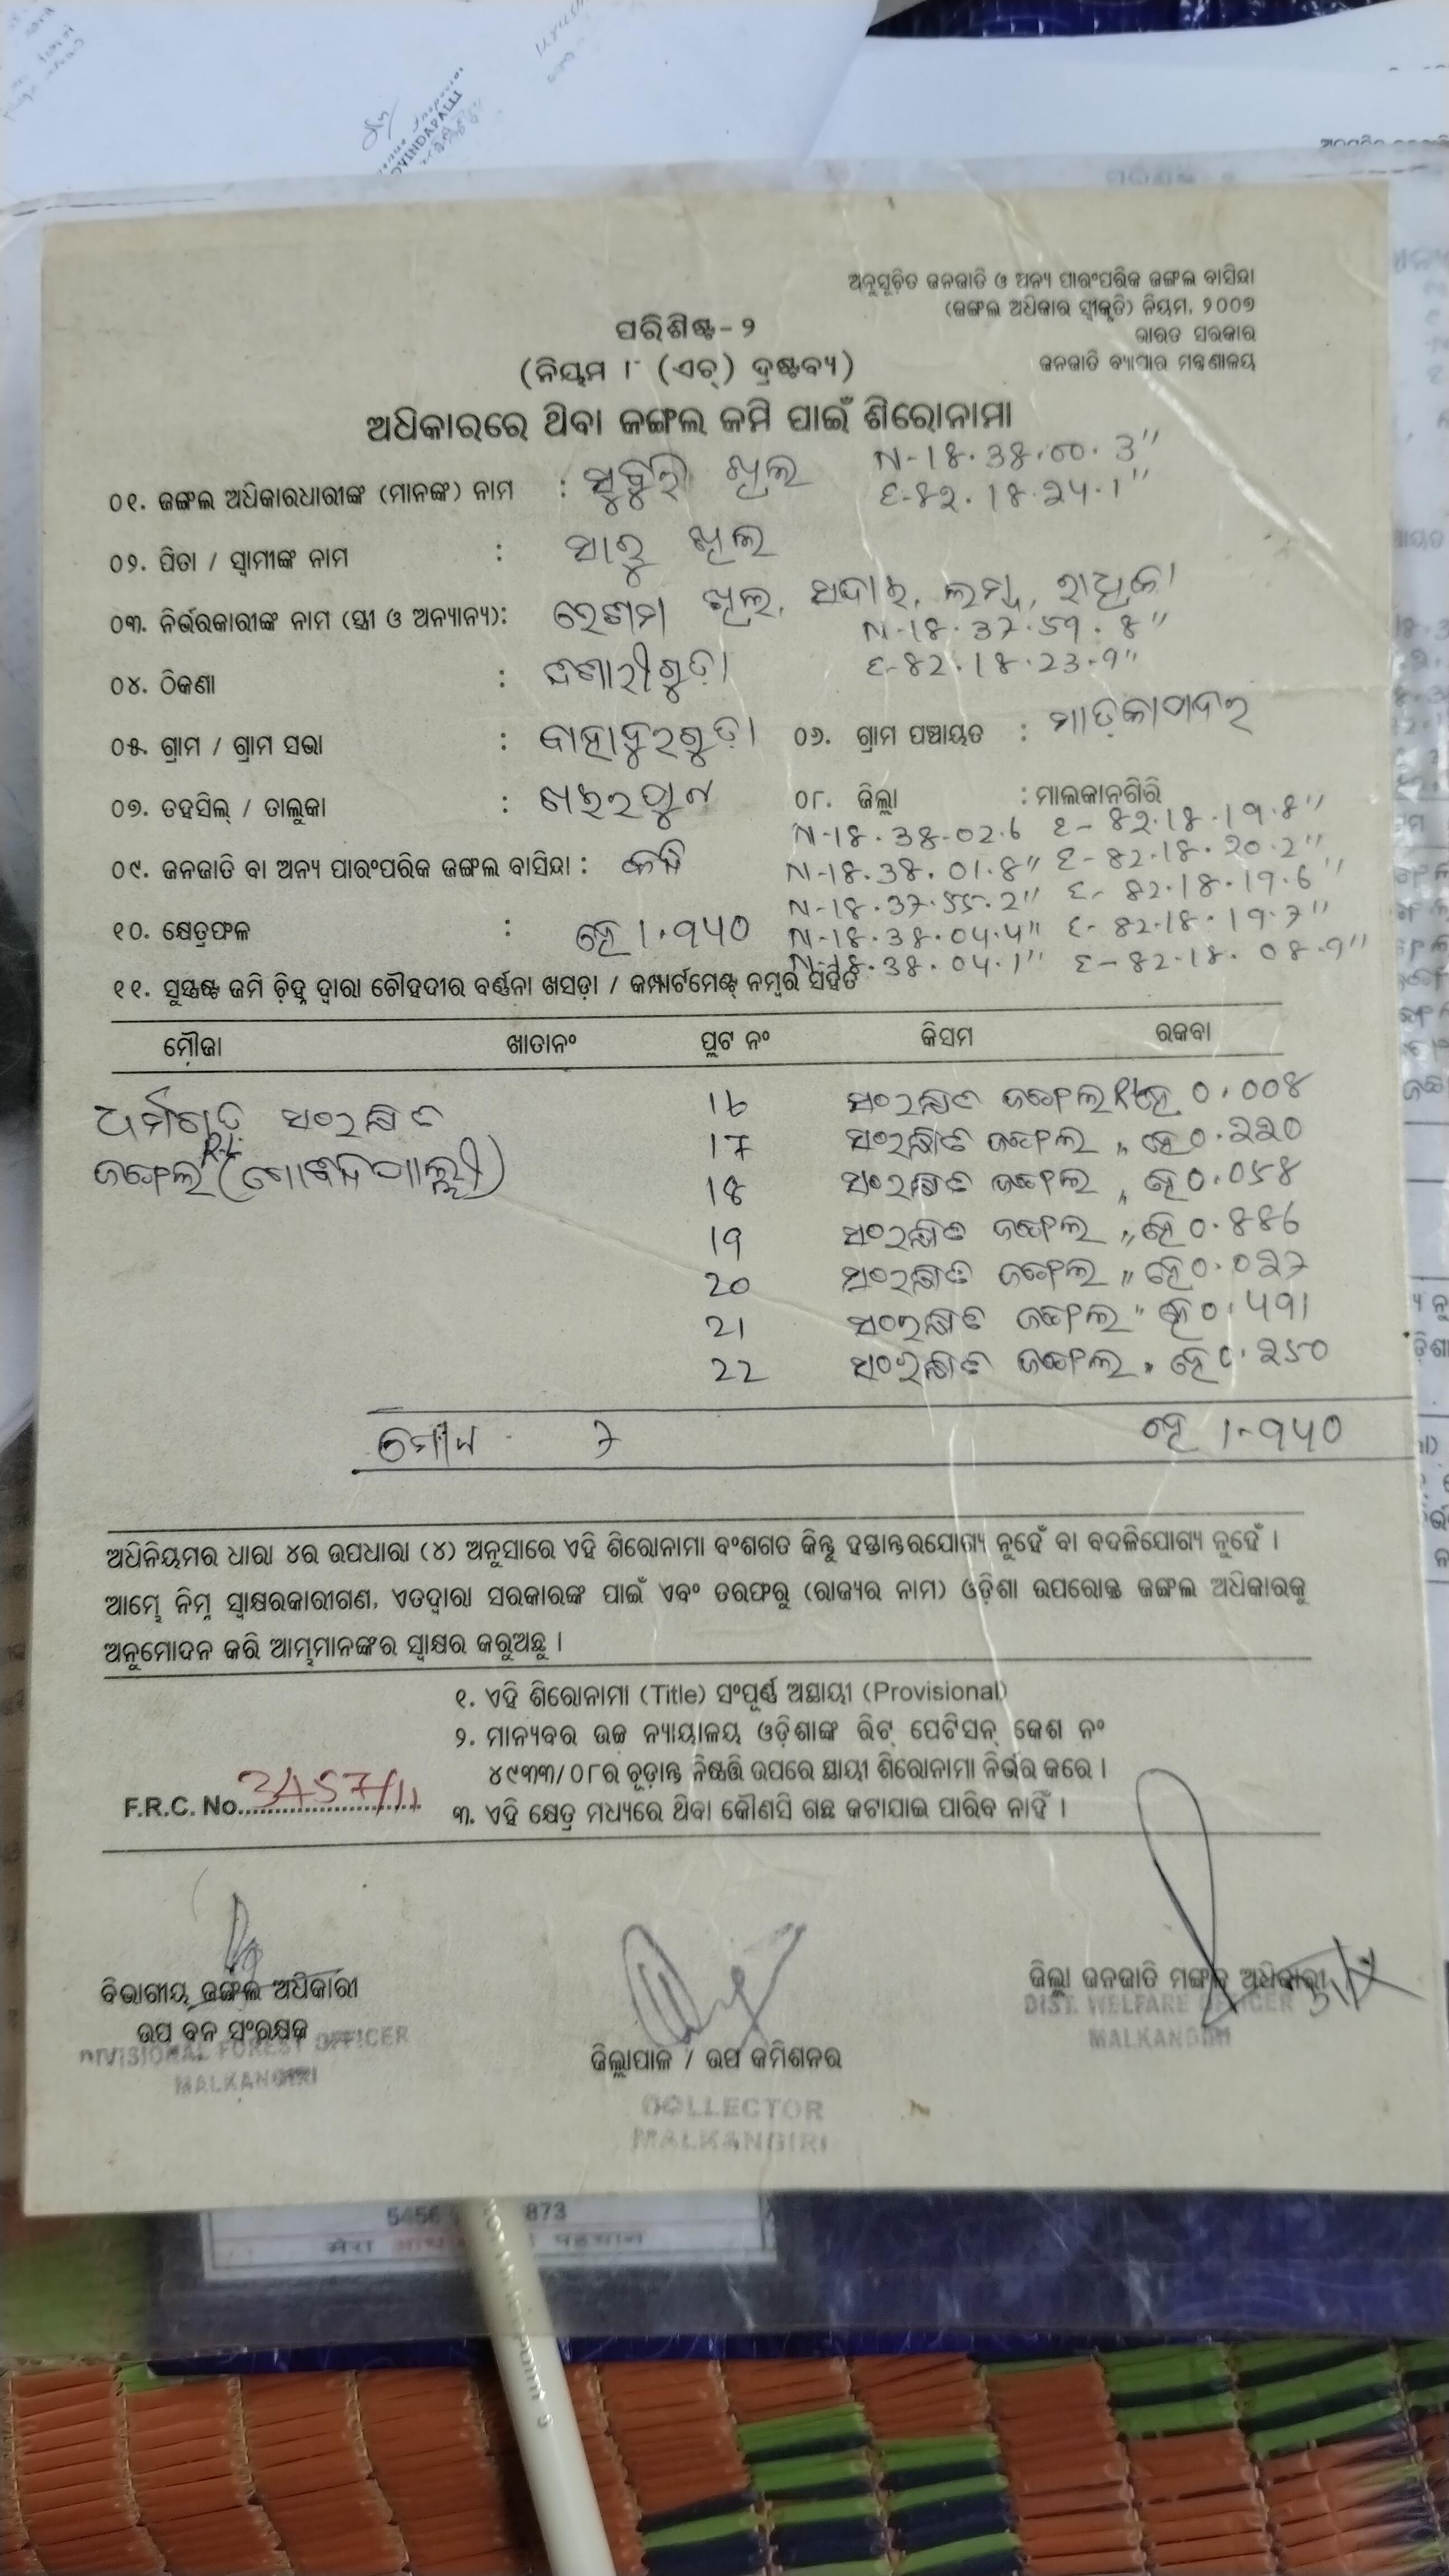 VINDAPALLI
ଅନୁସୂଚିତ ଜନଜାତି ଓ ଅନ୍ୟ ପାରଂପରିକ ଜଙ୍ଗଲ ବାସିନ୍ଦା
(ଜଙ୍ଗଲ ଅଧିକାର ସ୍ୱୀକୃତି) ନିୟମ, ୨୦୦୭
ଭାରତ ସରକାର
ଜନଜାତି ବ୍ୟାପାର ମନ୍ତ୍ରଣାଳୟ
ପରିଶିଷ୍ଟ - ୨
(ନିୟମ ୮ (ଏଚ୍) ଦ୍ରଷ୍ଟବ୍ୟ)
ଅଧିକାରରେ ଥିବା ଜଙ୍ଗଲ ଜମି ପାଇଁ ଶିରୋନାମା
N-18.38.00.3"
୦୧. ଜଙ୍ଗଲ ଅଧିକାରଧାରୀଙ୍କ (ମାନଙ୍କ) ନାମ : ଖିଲ E-82.18.24.1"
୦୨. ପିତା / ସ୍ୱାମୀଙ୍କ ନାମ : ଖିଲ
୦୩. ନିର୍ଭରକାରୀଙ୍କ ନାମ (ସ୍ତ୍ରୀ ଓ ଅନ୍ୟାନ୍ୟ): ଖିଲ, ରାଧିକା
N-18.37.59.8"
୦୪. ଠିକଣା : E-82.18.23.9"
୦୫. ଗ୍ରାମ / ଗ୍ରାମ ସଭା : ବାହାଦୁରଗୁଡ଼ା ୦୬. ଗ୍ରାମ ପଞ୍ଚାୟତ :
୦୭. ତହସିଲ୍ / ତାଲୁକା : ଖଇରପୁଟ ୦୮. ଜିଲ୍ଲା : ମାଲକାନଗିରି
N-18.38.02.6 E-82.18.19.8"
୦୯. ଜନଜାତି ବା ଅନ୍ୟ ପାରଂପରିକ ଜଙ୍ଗଲ ବାସିନ୍ଦା : N-18.38.01.8" E-82.18.20.2"
N-18.37.55.2" E-82.18.19.6"
୧୦. କ୍ଷେତ୍ରଫଳ : ହେ 1.940 N-18.38.04.4" E-82.18.19.7"
N-18.38.04.1" E-82.18.08.9"
୧୧. ସୁସ୍ପଷ୍ଟ ଜମି ଚିହ୍ନ ଦ୍ୱାରା ଚୌହଦୀର ବର୍ଣ୍ଣନା ଖସଡ଼ା / କମ୍ପାର୍ଟମେଣ୍ଟ୍ ନମ୍ବର ସହିତ
ମୌଜା ଖାତାନଂ ପ୍ଲଟ ନଂ କିସମ ରକବା
ସଂରକ୍ଷିତ 16 ସଂରକ୍ଷିତ ଜଙ୍ଗଲ ହେ 0.008
ଜଙ୍ଗଲ 17 ସଂରକ୍ଷିତ ଜଙ୍ଗଲ " ହେ 0.220
18 ସଂରକ୍ଷିତ ଜଙ୍ଗଲ " ହେ 0.058
19 ସଂରକ୍ଷିତ ଜଙ୍ଗଲ " ହେ 0.886
20 ସଂରକ୍ଷିତ ଜଙ୍ଗଲ " ହେ 0.027
21 ସଂରକ୍ଷିତ ଜଙ୍ଗଲ " ହେ 0.491
22 ସଂରକ୍ଷିତ ଜଙ୍ଗଲ " ହେ 0.250
ମୋଟ 7 ହେ 1.940
ଅଧିନିୟମର ଧାରା ୪ର ଉପଧାରା (୪) ଅନୁସାରେ ଏହି ଶିରୋନାମା ବଂଶଗତ କିନ୍ତୁ ହସ୍ତାନ୍ତରଯୋଗ୍ୟ ନୁହେଁ ବା ବଦଳିଯୋଗ୍ୟ ନୁହେଁ ।
ଆମ୍ଭେ ନିମ୍ନ ସ୍ୱାକ୍ଷରକାରୀଗଣ, ଏତଦ୍ୱାରା ସରକାରଙ୍କ ପାଇଁ ଏବଂ ତରଫରୁ (ରାଜ୍ୟର ନାମ) ଓଡ଼ିଶା ଉପରୋକ୍ତ ଜଙ୍ଗଲ ଅଧିକାରକୁ
ଅନୁମୋଦନ କରି ଆମ୍ଭମାନଙ୍କର ସ୍ୱାକ୍ଷର କରୁଅଛୁ ।
୧. ଏହି ଶିରୋନାମା (Title) ସଂପୂର୍ଣ୍ଣ ଅସ୍ଥାୟୀ (Provisional)
୨. ମାନ୍ୟବର ଉଚ୍ଚ ନ୍ୟାୟାଳୟ ଓଡ଼ିଶାଙ୍କ ରିଟ୍ ପେଟିସନ୍ କେଶ ନଂ
୪୯୩୩/୦୮ର ଚୂଡ଼ାନ୍ତ ନିଷ୍ପତ୍ତି ଉପରେ ସ୍ଥାୟୀ ଶିରୋନାମା ନିର୍ଭର କରେ ।
F.R.C. No. 3457/11
୩. ଏହି କ୍ଷେତ୍ର ମଧ୍ୟରେ ଥିବା କୌଣସି ଗଛ କଟାଯାଇ ପାରିବ ନାହିଁ ।
ବିଭାଗୀୟ ଜଙ୍ଗଲ ଅଧିକାରୀ
ଉପ ବନ ସଂରକ୍ଷକ
DIVISIONAL FOREST OFFICER
MALKANGIRI
ଜିଲ୍ଲାପାଳ / ଉପ କମିଶନର
COLLECTOR
MALKANGIRI
ଜିଲ୍ଲା ଜନଜାତି ମଙ୍ଗଳ ଅଧିକାରୀ
DIST. WELFARE OFFICER
MALKANGIRI
5456 873
मेरा